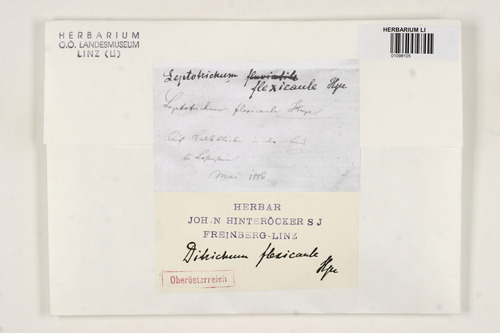 HERBARIUM
O.Ö. LANDESMUSEUM
LINZ (LI)
HERBARIUM LI
01098105
Leptotrichum fluviatile
flexicaule Hpe
Leptotrichum flexicaule Hampe
Auf
in der
Mai 1886
HERBAR
JOH. N HINTERÖCKER S J
FREINBERG-LINZ
Ditrichum flexicaule
Hpe
Oberösterreich